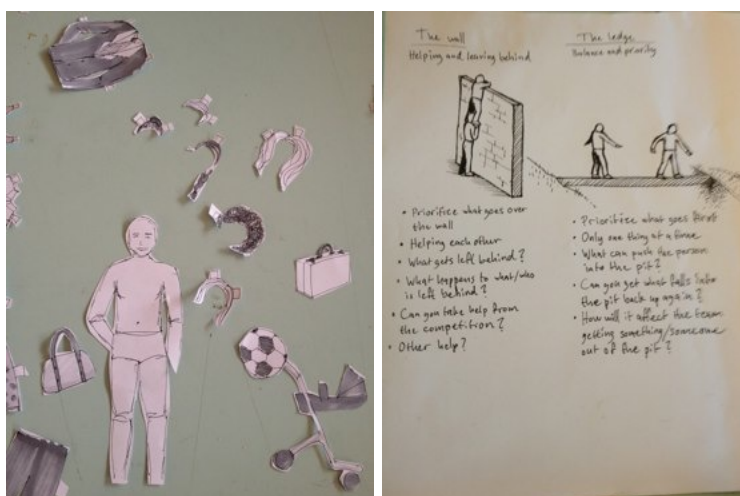 The wall
Helping and leaving behind
• Prioritize what goes over
the wall
• Helping each other
• What gets left behind?
• What happens to what/who
is left behind?
• Can you take help from
the competition?
• Other help?
The ledge
Balance and priority
• Prioritize what goes first
• Only one thing at a time
• What can push the person
into the pit?
• Can you get what falls into
the pit back up again?
• How will it affect the team
getting something/someone
out of the pit?